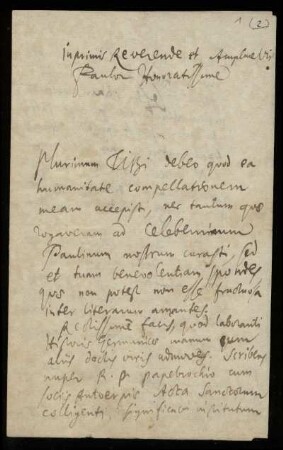 1 (2)
Inprimis Reverende et Amplme Vir
Fautor Honoratissime
Plurimum Tibi debeo quod ea
humanitate compellationem
meam accepisti, nec tantum quae
rogaveram ad Celeberrimum
Paulinum nostrum curasti, sed
et tuam benevolentiam spondes
quae non potest non esse fructuosa
inter literarum amantes.
Rectissime facis, quod laboranti
Historiae Germanicae manum cum
aliis doctis viris admoves. Scribens
nuper R. P. Papebrochio cum
sociis Antverpiae Acta Sanctorum
colligenti, significavi institutum